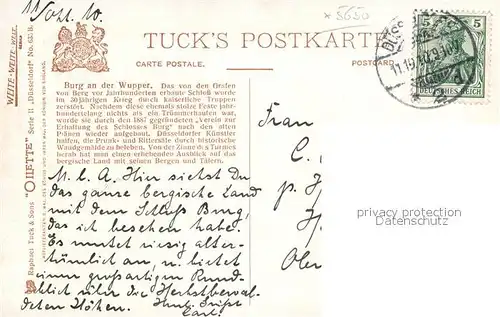 11/Okt. 10.
* 5650
TUCK'S POSTKARTE
CARTE POSTALE.
POSTCARD
Burg an der Wupper. Das von den Grafen
von Berg vor Jahrhunderten erbaute Schloß wurde
im 30jährigen Krieg durch kaiserliche Truppen
zerstört. Nachdem diese ehemals stolze Feste jahr-
hundertelang nichts als ein Trümmerhaufen war,
wurde sie durch den 1887 gegründeten „Verein zur
Erhaltung des Schlosses Burg“ nach den alten
Plänen wieder aufgebaut. Düsseldorfer Künstler
haben die Prunk- und Rittersäle durch historische
Wandgemälde zu Beleben. Von der Zinne d. s Turmes
hat man einen erhebenden Ausblick auf das
bergische Land mit seinen Bergen und Tälern.
Raphael Tuck & Sons "OILETTE" Serie "Düsseldorf" No. 631B.
WEITE-WEITE WELT
5 5
DEUTSCHES REICH
11.10.10
M. l. A. Hier siehst Du
das ganze bergische Land
mit dem Schloß Burg,
das ich besehen habe.
Es mutet riesig alter-
tümlich an, u. bietet
einen großartigen Rund-
blick über die Herbstbewal-
deten Höhen. Herzl. Grüße
Carl.
Frau
C,
p. H
H,
Ober
privacy protection
oldthing.de